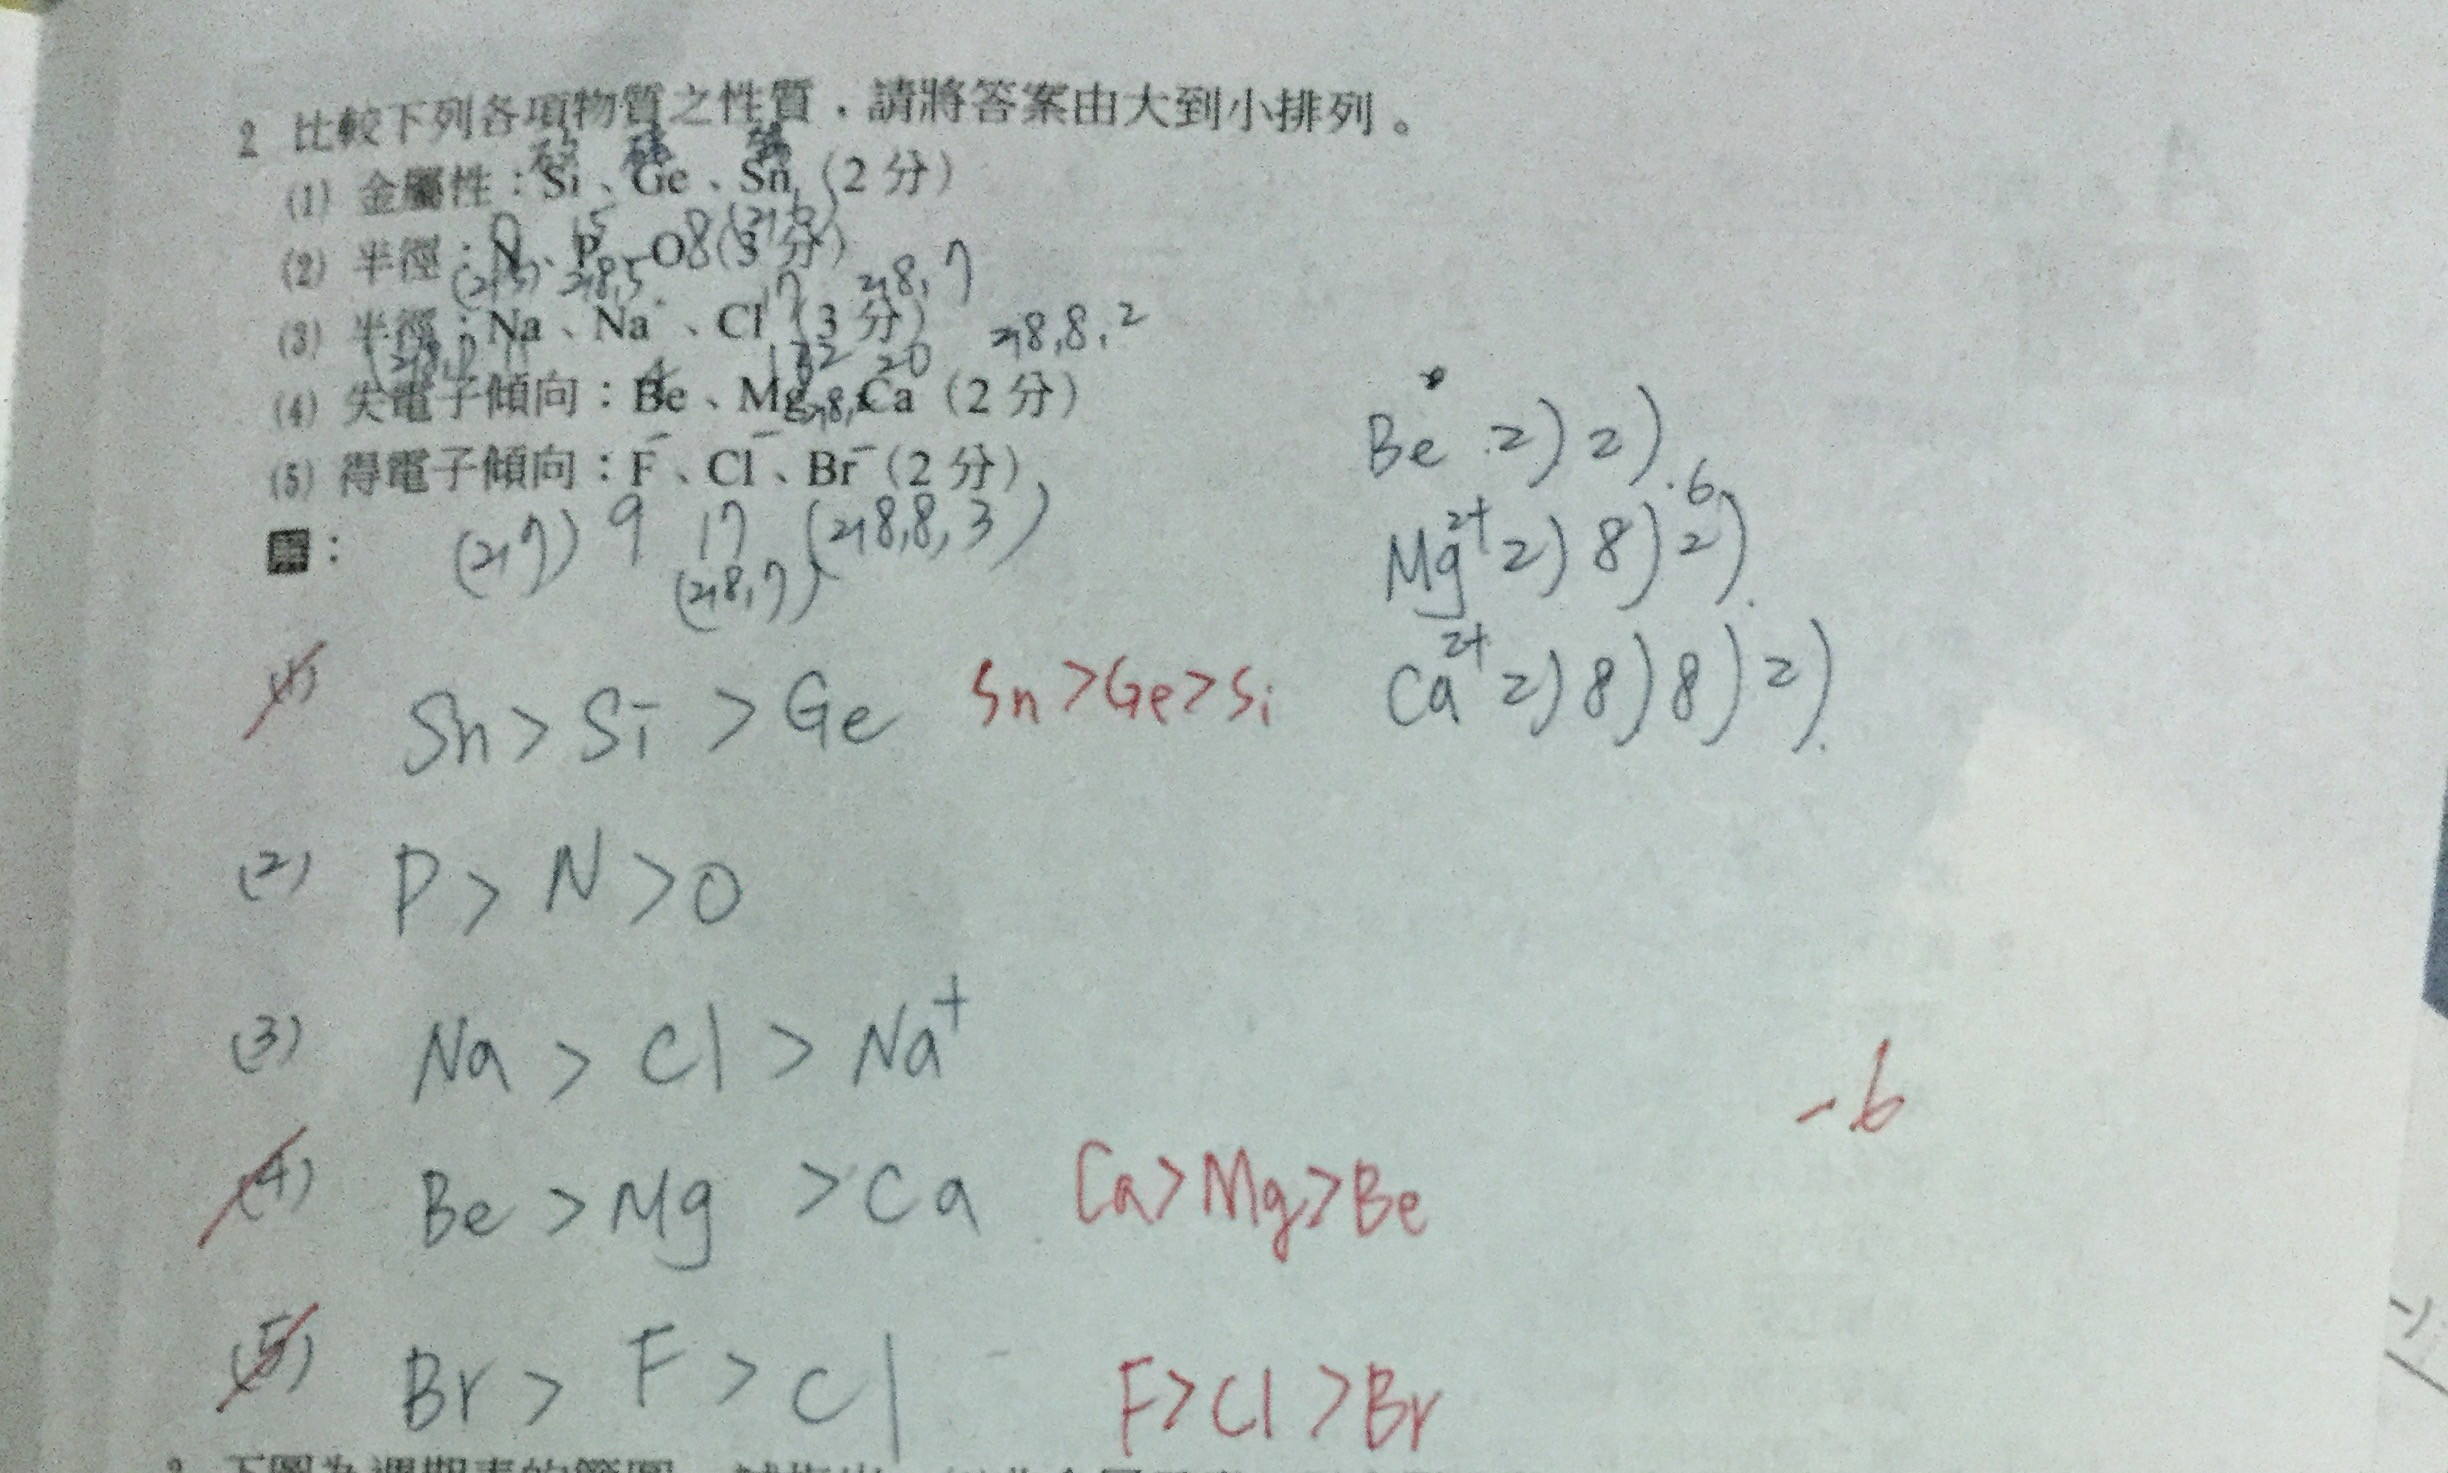 2 比較下列各項物質之性質，請將答案由大到小排列。
矽
(1) 金屬性：Si、Ge、Sn（2 分）
15 (2,6)
(2) 半徑：N、P、O 8（3 分）
(2,5) 2,8,5 17 2,8,7
(3) 半徑：Na、Na⁺、Cl（3 分） 2,8,8,2
4 12 20
(4) 失電子傾向：Be、Mg、Ca（2 分）
Be 2) 2)
(5) 得電子傾向：F⁻、Cl⁻、Br⁻（2 分）
Mg²⁺ 2) 8) 2)
解： (2,7) 9 17 (2,8,8,3)
(2,8,7)
Ca²⁺ 2) 8) 8) 2)
(1) Sn > Si > Ge Sn > Ge > Si
(2) P > N > O
(3) Na > Cl > Na⁺
-6
(4) Be > Mg > Ca Ca > Mg > Be
(5) Br > F > Cl F > Cl > Br